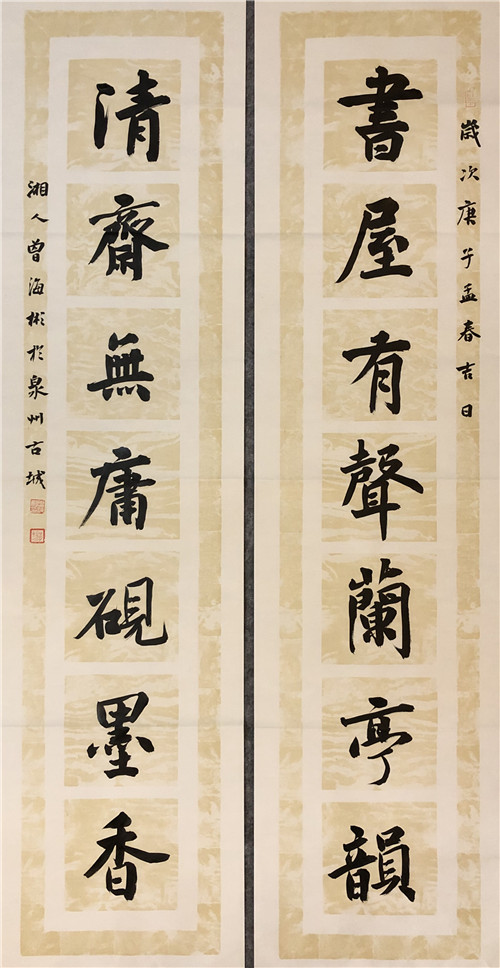 歲次庚子孟春吉日
書屋有聲蘭亭韻
清齋無庸硯墨香
湘人曾海彬於泉州古城